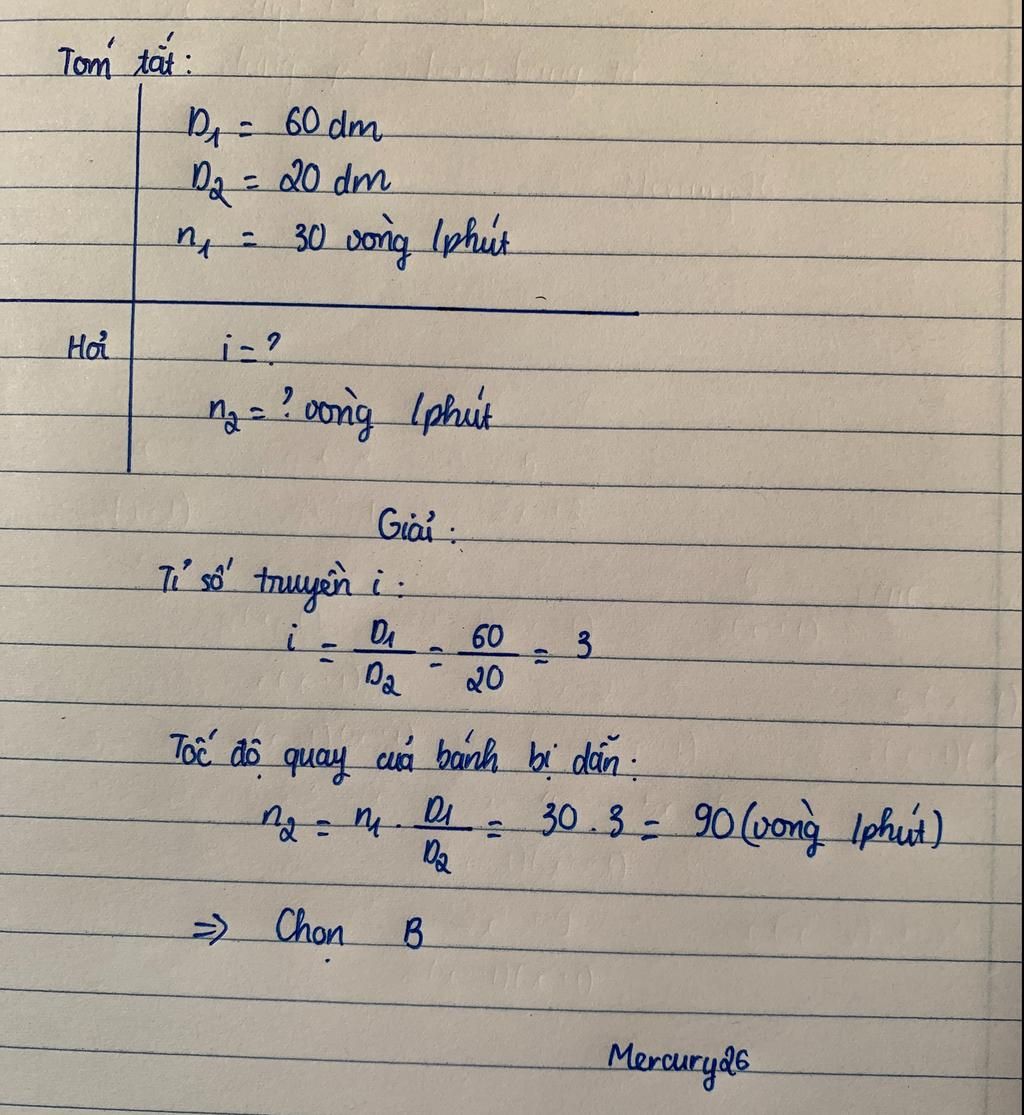 Tóm tắt:
D₁ = 60 dm
D₂ = 20 dm
n₁ = 30 vòng /phút
Hỏi i = ?
n₂ = ? vòng /phút
Giải:
Tỉ số truyền i:
i = D₁/D₂ = 60/20 = 3
Tốc độ quay của bánh bị dẫn:
n₂ = n₁ . D₁/D₂ = 30 . 3 = 90 (vòng /phút)
=> Chọn B
Mercury26